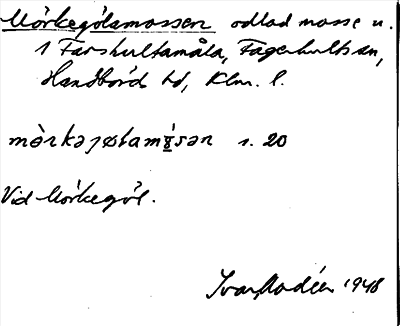 Mörkegölamossen odlad mosse u.
1 Farshultamåla, Fagerhults sn,
Handbörd hd, Klm. l.
mə̀rkəjøtamɪ́sən s. 20
Vid Mörkegöl.
Ivar Modéer 1948